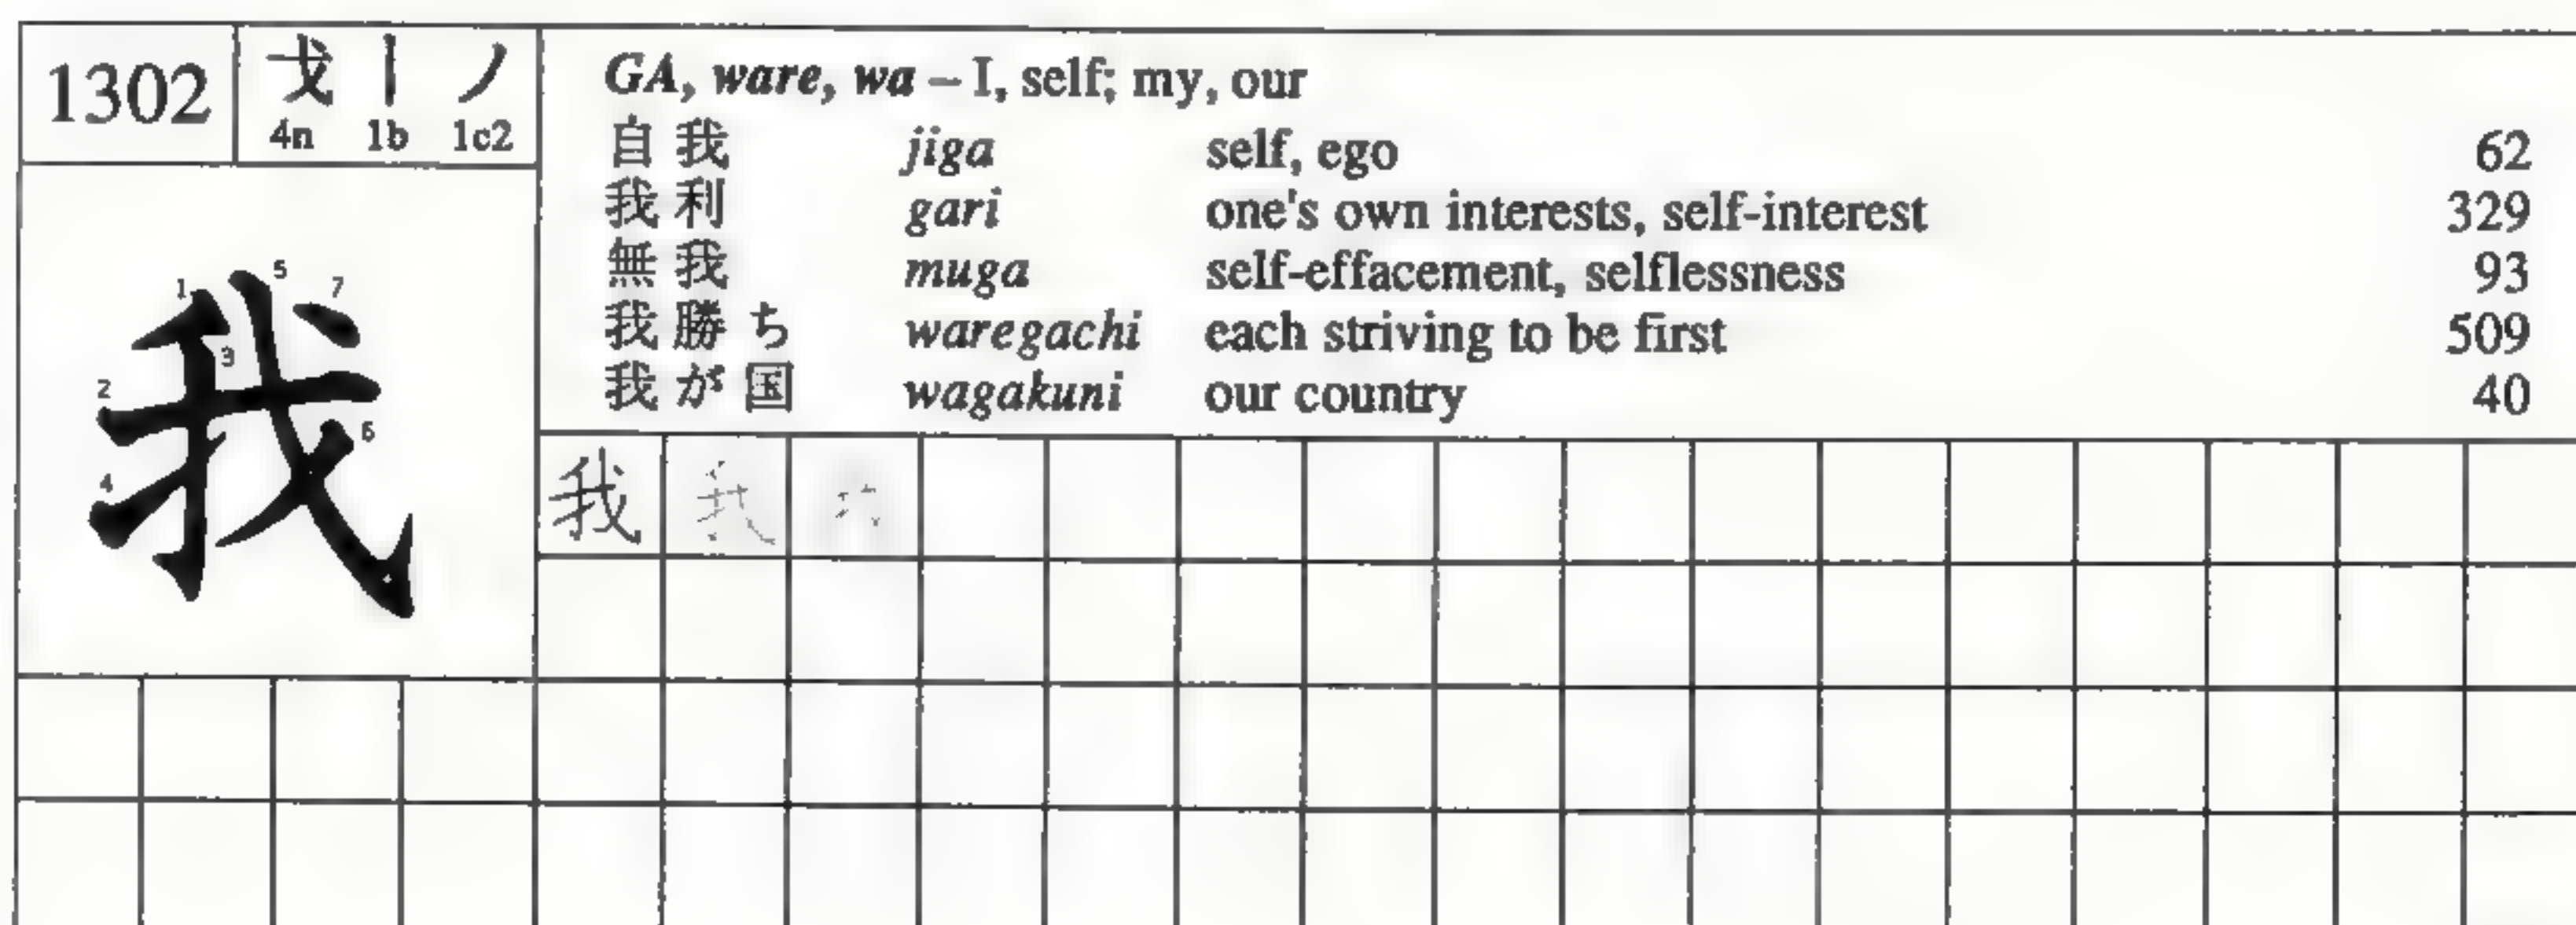 1302
戈 丨 ノ
4n 1b 1c2
GA, ware, wa – I, self; my, our
自我 jiga self, ego 62
我利 gari one's own interests, self-interest 329
無我 muga self-effacement, selflessness 93
我勝ち waregachi each striving to be first 509
我が国 wagakuni our country 40
我
1 2 3 4 5 6 7
我 我